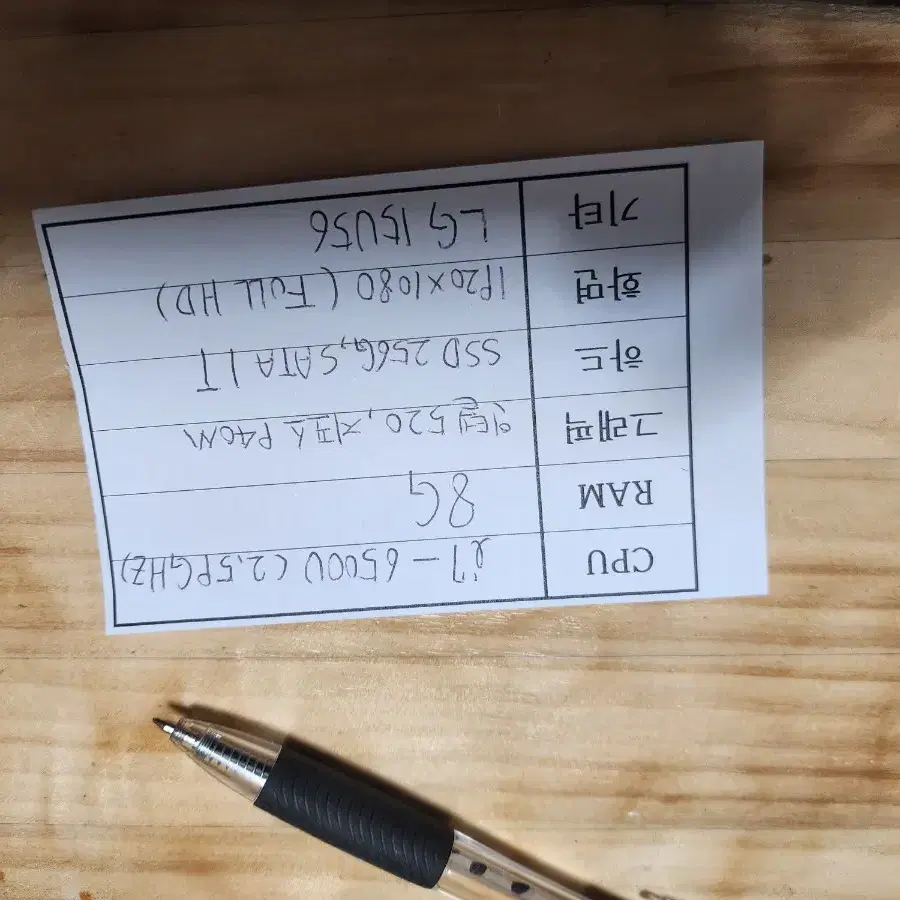 CPU i7-6500U (2.59GHz)
RAM 8G
그래픽 인텔520, 지포스 940M
하드 SSD 256G, SATA 1T
화면 1920x1080 (FULL HD)
기타 LG 15U56